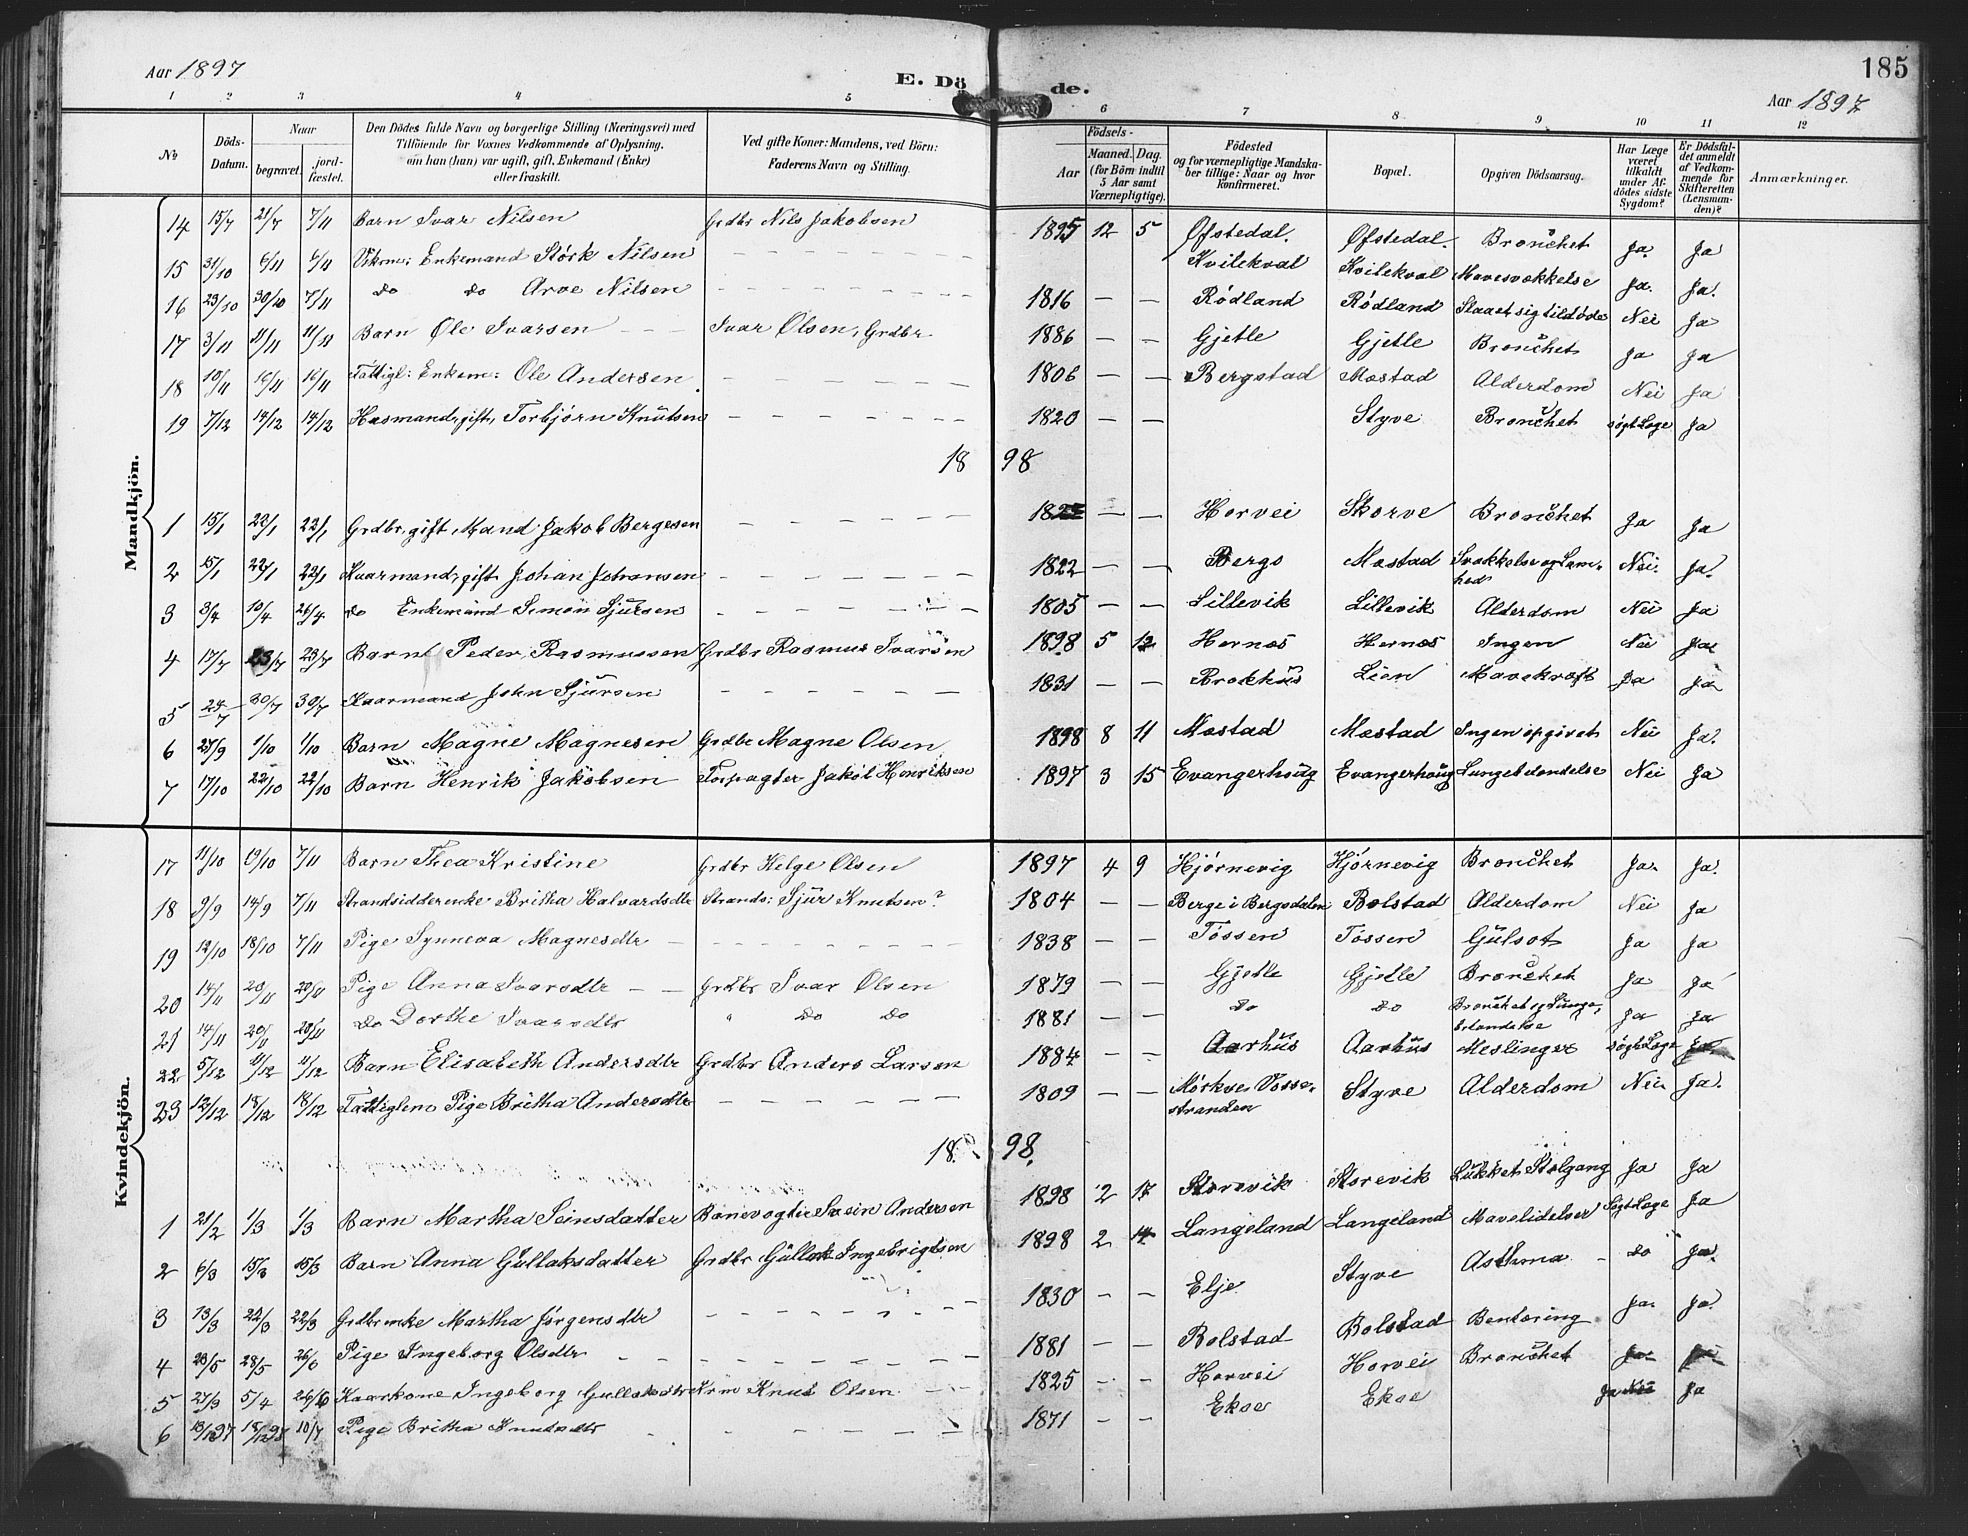 Aar 1897
E. Dö de.
185
Aar 1897
1 2 3 4 5 6 7 8 9 10 11 12
No
Döds-Datum.
Naar
begravet.
jord-fæstet.
Den Dödes fulde Navn og borgerlige Stilling (Næringsvei) med
Tilföiende for Voxnes Vedkommende af Oplysning,
om han (hun) var ugift, gift, Enkemand (Enke)
eller fraskilt.
Ved gifte Koner: Mandens, ved Börn:
Faderens Navn og Stilling.
Födsels-
Aar
Maaned. Dag.
(for Börn indtil
5 Aar samt
Værnepligtige).
Födested
og for værnepligtige Mandska-
ber tillige: Naar og hvor
konfirmeret.
Bopæl.
Opgiven Dödsaarsag.
Har Læge
været
tilkaldt
under Af-
dödes sidste
Sygdom?
Er Dödsfal-
det anmeldt
af Vedkom-
mende for
Skifteretten
(Lensman-
den)?
Anmærkninger.
Mandkjön.
14 15/7 21/7 7/11 Barn Ivar Nilsen Grdbr Nils Jakobsen 1895 12 5 Øfstedal. Øfstedal. Bronchet Ja. Ja
15 31/10 6/11 6/11 Enkemand Størk Nilsen — Kvilekval Kvilekval Mavesvækkelse Ja. Ja.
16 23/10 30/10 7/11 do do Arve Nilsen — 1816 — — Rødland Rødland Staaet sig tildøde Nei Ja
17 3/11 11/11 11/11 Barn Ole Ivarsen — Ivar Olsen, Grdbr 1886 — — Gjetle Gjetle Bronchet Ja Ja
18 10/11 16/11 16/11 Fattigl: Enkem: Ole Andersen — 1806 — — Bergstad Mæstad Alderdom Nei Ja
19 7/12 14/12 14/12 Husmand, gift, Torbjørn Knutsen — 1820 — — Styve Bronchet søgt Læge Ja
18 98
1 15/1 22/1 22/1 Grdbr, gift, Mand Jakob Bergesen — — — Horvei Skorve Bronchet Ja Ja
2 15/1 22/1 22/1 Kaarmand, gift Johan Johansen — 1822 — — Bergo Mæstad Svækkelse og Lam-
hed Nei. Ja.
3 3/4 10/4 26/4 do Enkemand Simon Sjursen — 1805 — — Lillevik Lillevik Alderdom Nei Ja
4 17/7 23/7 23/7 Barn Peder Rasmussen Grdbr Rasmus Ivarsen 1898 5 12 Hernæs Hernæs Ingen Nei Ja
5 24/7 30/7 30/7 Kaarmand John Sjursen — 1831 — — Brekhus Lien Mavekræft Ja Ja
6 27/9 1/10 1/10 Barn Magne Magnesen Grdbr Magne Olsen 1898 8 11 Mæstad Mæstad Ingen opgivet Nei Ja.
7 17/10 22/10 22/10 Barn Henrik Jakobsen Forpagter Jakob Henriksen 1897 3 15 Evangerhoug Evangerhoug Lungebetændelse Nei Ja
Kvindekjön.
17 11/10 19/10 7/11 Barn Thea Kristine Grdbr Helge Olsen 1897 4 9 Hjørnevig Hjørnevig Bronchet Ja. Ja.
18 9/9 14/9 7/11 Strandsidderenke Britha Halvardsdtr Strands: Sjur Knutsen? 1804 — — Berge i Bergsdalen Bolstad Alderdom Nei Ja
19 12/10 18/10 7/11 Pige Synneva Magnesdtr — 1838 — — Tøssen Tøssen Gulsot Ja Ja
20 14/11 20/11 20/11 Pige Anna Ivarsdtr — Grdbr Ivar Olsen 1879 — — Gjetle Gjetle Bronchet Ja Ja
21 14/11 20/11 20/11 do Dorthe Ivarsdtr " do do 1881 — — do do Bronchet og Lunge-
betændelse Ja Ja
22 5/12 11/12 11/12 Barn Elisabeth Andersdtr Grdbr Anders Larsen 1884 — — Aarhus Aarhus Meslinger søgt Læge Ja
23 12/12 18/12 18/12 Fattiglem Pige Britha Andersdtr — 1809 — — Mørkve Vosse-
stranden Styve Alderdom Nei Ja.
18 98.
1 21/2 1/3 1/3 Barn Martha Seinsdatter Banevogter Svein Andersen 1898 2 17 Storevik Storevik Lukket Stolgang Ja Ja
2 6/3 15/3 15/3 Barn Anna Gullaksdatter Grdbr Gullak Ingebrigtsen 1898 2 14 Langeland Langeland Mavelidelser Søgt Læge Ja
3 13/3 22/3 22/3 Grdbrenke Martha Jørgensdtr — 1830 — — Elje Styve Asthma do Ja.
4 23/5 28/5 26/6 Pige Ingeborg Olsdtr — 1881 — — Bolstad Bolstad Bentæring Ja. Ja.
5 27/3 5/4 26/6 Kaarkone Ingeborg Gullaksdtr Krm Knut Olsen — 1825 — — Horvei Horvei Bronchet Ja
6 13/12 97 18/12 97 10/7 Pige Britha Knutsdtr — 1871 — — Ekse Ekse Ja Nei Ja